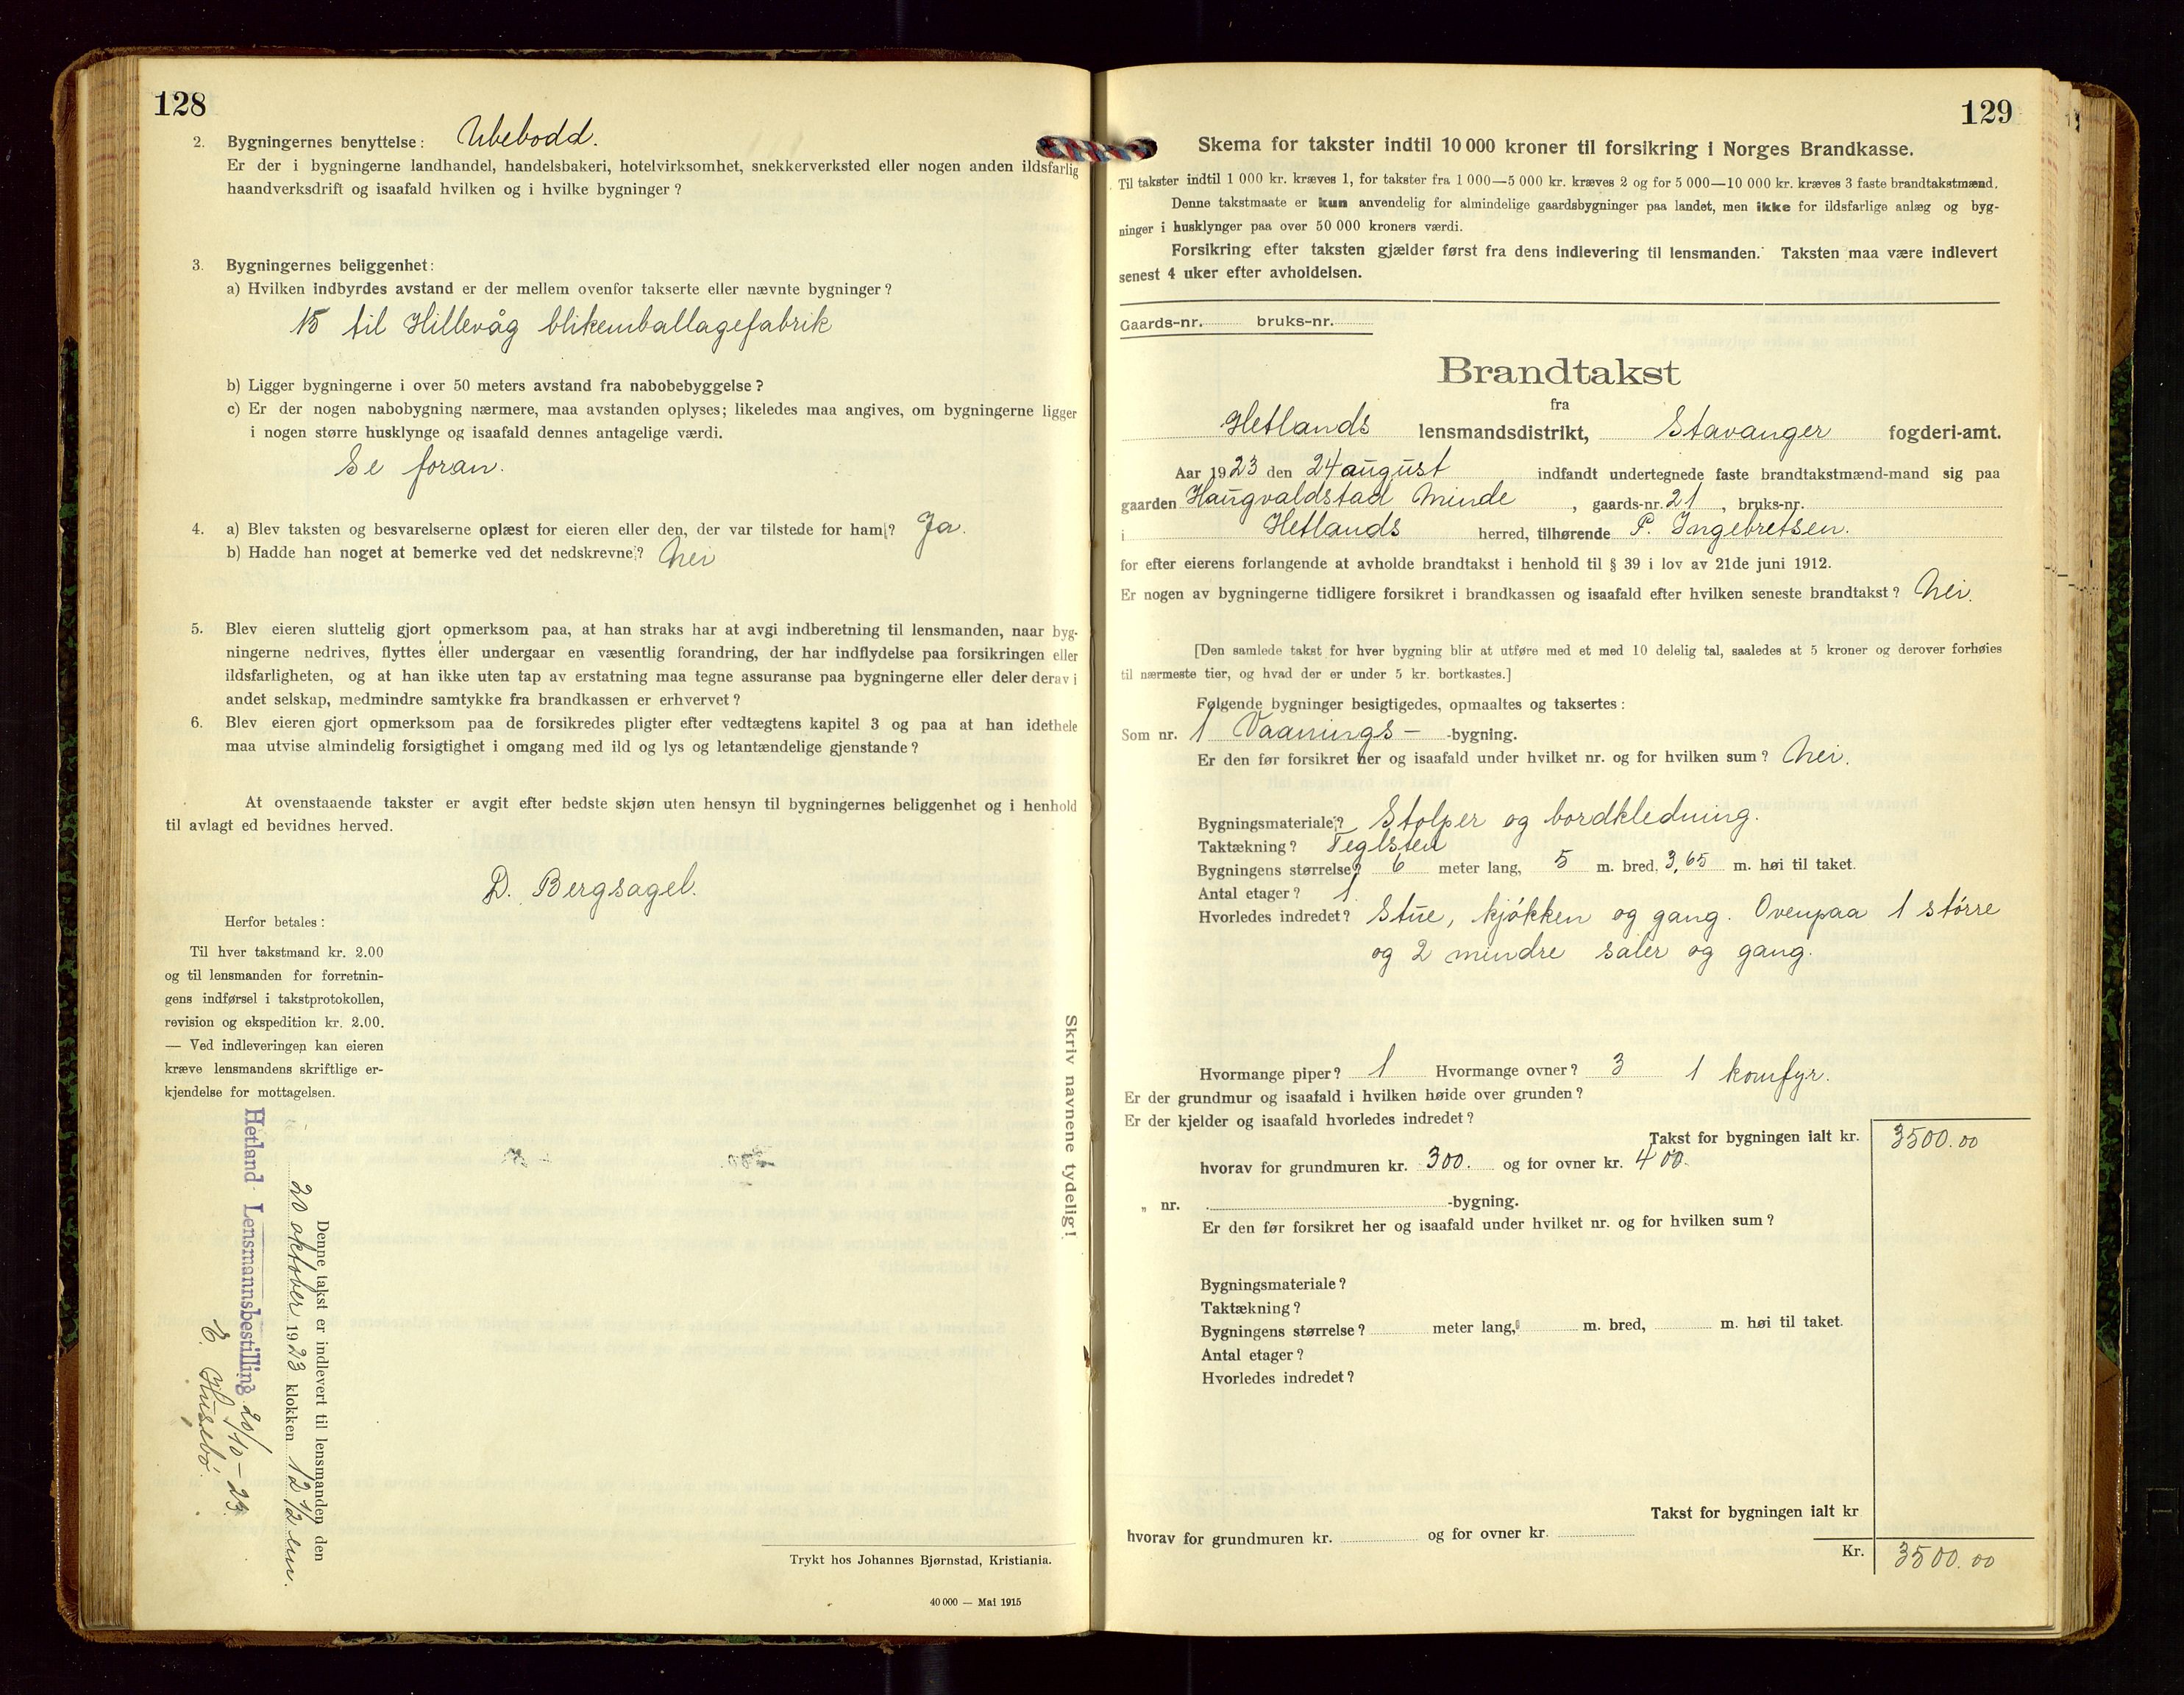 128
2. Bygningernes benyttelse: Ubebodd.
Er der i bygningerne landhandel, handelsbakeri, hotelvirksomhet, snekkerverksted eller nogen anden ildsfarlig
haandverksdrift og isaafald hvilken og i hvilke bygninger?
3. Bygningernes beliggenhet:
a) Hvilken indbyrdes avstand er der mellem ovenfor takserte eller nævnte bygninger?
15 til Hillevåg blikemballagefabrik
b) Ligger bygningerne i over 50 meters avstand fra nabobebyggelse?
c) Er der nogen nabobygning nærmere, maa avstanden oplyses; likeledes maa angives, om bygningerne ligger
i nogen større husklynge og isaafald dennes antagelige værdi.
Se foran.
4. a) Blev taksten og besvarelserne oplæst for eieren eller den, der var tilstede for ham? Ja.
b) Hadde han noget at bemerke ved det nedskrevne? Nei
5. Blev eieren sluttelig gjort opmerksom paa, at han straks har at avgi indberetning til lensmanden, naar byg-
ningerne nedrives, flyttes eller undergaar en væsentlig forandring, der har indflydelse paa forsikringen eller
ildsfarligheten, og at han ikke uten tap av erstatning maa tegne assuranse paa bygningerne eller deler derav i
andet selskap, medmindre samtykke fra brandkassen er erhvervet?
6. Blev eieren gjort opmerksom paa de forsikredes pligter efter vedtægtens kapitel 3 og paa at han idethele
maa utvise almindelig forsigtighet i omgang med ild og lys og letantændelige gjenstande?
At ovenstaaende takster er avgit efter bedste skjøn uten hensyn til bygningernes beliggenhet og i henhold
til avlagt ed bevidnes herved.
D. Bergsagel.
Herfor betales:
Til hver takstmand kr. 2.00
og til lensmanden for forretnin-
gens indførsel i takstprotokollen,
revision og ekspedition kr. 2.00.
— Ved indleveringen kan eieren
kræve lensmandens skriftlige er-
kjendelse for mottagelsen.
Skriv navnene tydelig!
Denne takst er indlevert til lensmanden den
20 oktober 1923 klokken 12 1/2 em.
Hetland Lensmannsbestilling 20/10-23.
E. Husebø.
Trykt hos Johannes Bjørnstad, Kristiania.
40 000 — Mai 1915
129
Skema for takster indtil 10 000 kroner til forsikring i Norges Brandkasse.
Til takster indtil 1 000 kr. kræves 1, for takster fra 1 000—5 000 kr. kræves 2 og for 5 000—10 000 kr. kræves 3 faste brandtakstmænd.
Denne takstmaate er kun anvendelig for almindelige gaardsbygninger paa landet, men ikke for ildsfarlige anlæg og byg-
ninger i husklynger paa over 50 000 kroners værdi.
Forsikring efter taksten gjælder først fra dens indlevering til lensmanden. Taksten maa være indlevert
senest 4 uker efter avholdelsen.
Gaards-nr. bruks-nr.
Brandtakst
fra
Hetlands lensmandsdistrikt, Stavanger fogderi-amt.
Aar 1923 den 24 august indfandt undertegnede faste brandtakstmænd-mand sig paa
gaarden Haugvaldstad Minde, gaards-nr. 21, bruks-nr.
i Hetlands herred, tilhørende P. Ingebretsen.
for efter eierens forlangende at avholde brandtakst i henhold til § 39 i lov av 21de juni 1912.
Er nogen av bygningerne tidligere forsikret i brandkassen og isaafald efter hvilken seneste brandtakst? Nei.
[Den samlede takst for hver bygning blir at utføre med et med 10 delelig tal, saaledes at 5 kroner og derover forhøies
til nærmeste tier, og hvad der er under 5 kr. bortkastes.]
Følgende bygninger besigtigedes, opmaaltes og taksertes:
Som nr. 1 Vaanings- -bygning.
Er den før forsikret her og isaafald under hvilket nr. og for hvilken sum? Nei.
Bygningsmateriale? Stolper og bordkledning.
Taktækning? Teglsten
Bygningens størrelse? 6 meter lang, 5 m. bred, 3,65 m. høi til taket.
Antal etager? 1.
Hvorledes indredet? Stue, kjøkken og gang. Ovenpaa 1 større
og 2 mindre saler og gang.
Hvormange piper? 1 Hvormange ovner? 3 1 komfyr.
Er der grundmur og isaafald i hvilken høide over grunden?
Er der kjelder og isaafald hvorledes indredet?
Takst for bygningen ialt kr. 3500.00
hvorav for grundmuren kr. 300. og for ovner kr. 400.
„ nr. -bygning.
Er den før forsikret her og isaafald under hvilket nr. og for hvilken sum?
Bygningsmateriale?
Taktækning?
Bygningens størrelse? meter lang, m. bred, m. høi til taket.
Antal etager?
Hvorledes indredet?
Takst for bygningen ialt kr
hvorav for grundmuren kr. og for ovner kr.
Kr. 3500.00